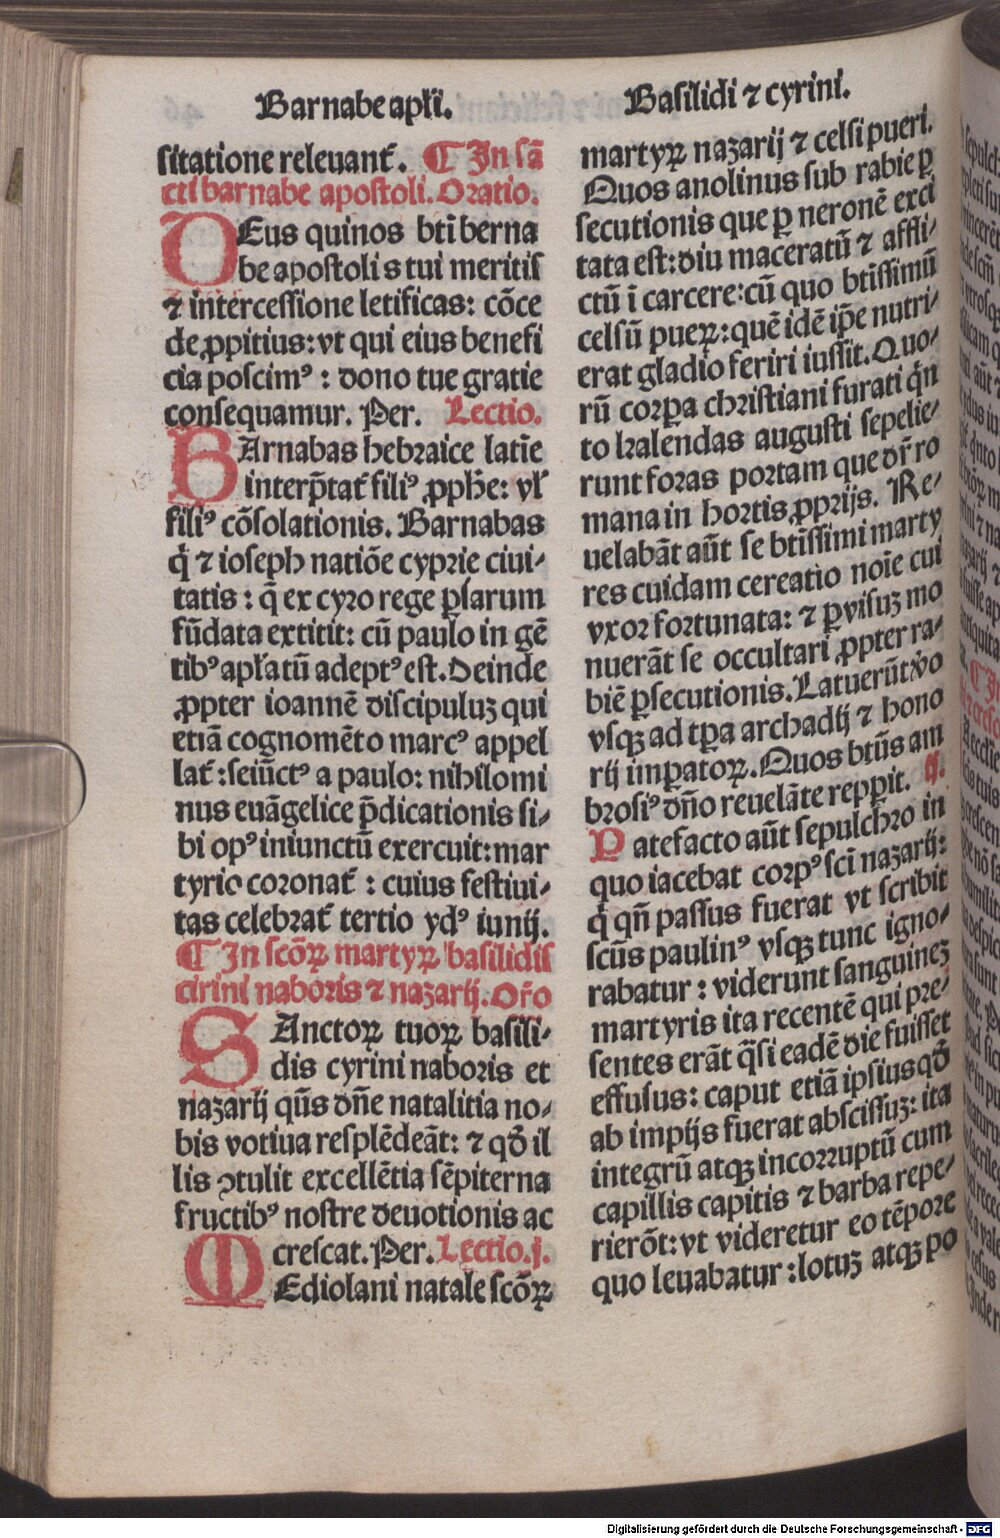 Barnabe apłi.
sitatione releuant̃. ¶ In sã
cti barnabe apostoli. Oratio.
DEus qui nos bt̃i berna
be apostoli s tui meritis
⁊ intercessione letificas: cõce
de ꝓpitius: vt qui eius benefi
cia poscimꝰ : dono tue gratie
consequamur. Per. Lectio.
BArnabas hebraice latiẽ
interp̃tat̃ filiꝰ ꝓph̃e: vł
filiꝰ cõsolationis. Barnabas
q̇ ⁊ ioseph natiõe cyprie ciui⸗
tatis : q̃ ex cyro rege ꝑsarum
fũdata extitit: cũ paulo in gẽ
tibꝰ apłatũ adeptꝰ est. Deinde
ꝓpter ioannẽ discipuluꝫ qui
etiã cognomẽto marcꝰ appel
lat̃ : seiũctꝰ a paulo: nihilomi
nus euãgelice p̃dicationis si⸗
bi opꝰ iniunctũ exercuit: mar
tyrio coronat̃ : cuius festiui⸗
tas celebrat̃ tertio ydꝰ iunij.
¶ In scõꝝ martyꝝ basilidis
cirini naboris ⁊ nazarij. Or̃o
SAnctoꝝ tuoꝝ basili⸗
dis cyrini naboris et
nazarij qũs dñe natalitia no⸗
bis votiua resplẽdeãt: ⁊ qð il
lis ꝯtulit excellẽtia sẽpiterna
fructibꝰ nostre deuotionis ac
crescat. Per. Lectio. j.
MEdiolani natale scõꝝ
Basilidi ⁊ cyrini.
martyꝝ nazarij ⁊ celsi pueri.
Quos anolinus sub rabie ꝑ
secutionis que ꝑ neronẽ exci
tata est: diu maceratũ ⁊ affli⸗
ctũ ĩ carcere: cũ quo bt̃issimũ
celsũ pueꝝ: quẽ idẽ ip̃e nutri⸗
erat gladio feriri iussit. Quo⸗
rũ corꝑa christiani furati q̃n
to kalendas augusti sepelie⸗
runt foras portam que dr̃ ro
mana in hortis ꝓprijs. Re⸗
uelabãt aũt se bt̃issimi marty
res cuidam cereatio noĩe cui
vxor fortunata: ⁊ ꝑ visuꝫ mo
nuerãt se occultari ꝓpter ra⸗
biẽ ꝑsecutionis. Latuerũt ṽo
vsqꝫ ad tꝑa archadij ⁊ hono
rij imꝑatoꝝ. Quos bt̃us am
brosiꝰ dñò reuelãte repꝑit. ij.
Patefacto aũt sepulchro in
quo iacebat corpꝰ sc̃i nazarij:
q̇ qñ passus fuerat vt scribit
sc̃us paulinꝰ vsqꝫ tunc igno⸗
rabatur : viderunt sanguineꝫ
martyris ita recentẽ qui pre⸗
sentes erãt q̃si eadẽ die fuisset
effusus: caput etiã ipsius qð
ab impijs fuerat abscissuꝫ: ita
integrũ atqꝫ incorruptũ cum
capillis capitis ⁊ barba repe⸗
rierõt: vt videretur eo tẽpore
quo leuabatur : lotuꝫ atqꝫ po
Digitalisierung gefördert durch die Deutsche Forschungsgemeinschaft - DFG